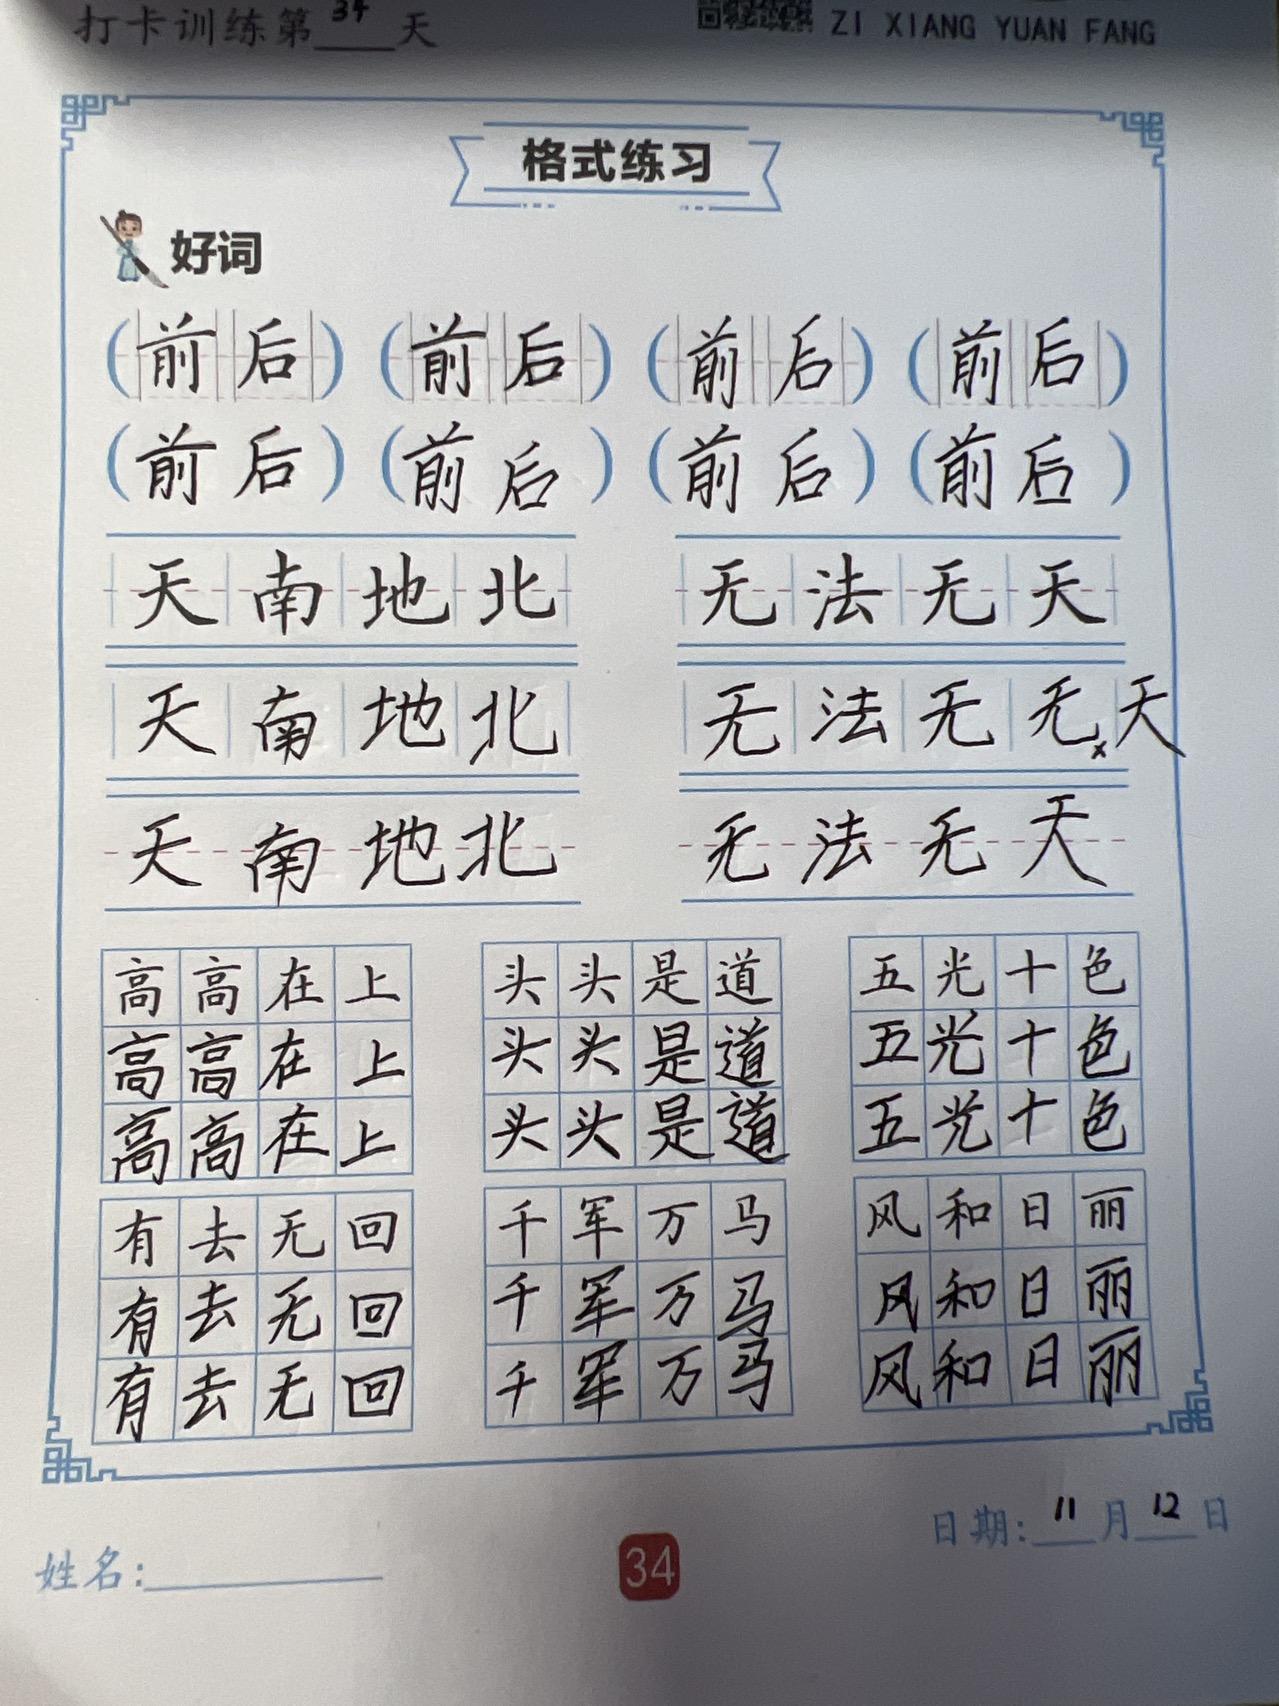 打卡训练第34天
ZI XIANG YUAN FANG
格式练习
好词
(前后) (前后) (前后) (前后)
(前后) (前后) (前后) (前后)
天南地北 无法无天
天南地北 无法无无x天
天南地北 无法无天
高高在上 头头是道 五光十色
高高在上 头头是道 五光十色
高高在上 头头是道 五光十色
有去无回 千军万马 风和日丽
有去无回 千军万马 风和日丽
有去无回 千军万马 风和日丽
日期:11月12日
姓名:
34